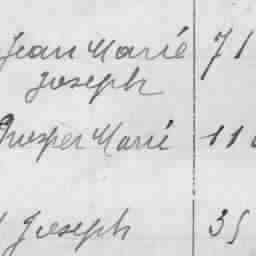 Jean Marie 71
Joseph
Prosper Marie 11
Joseph 35